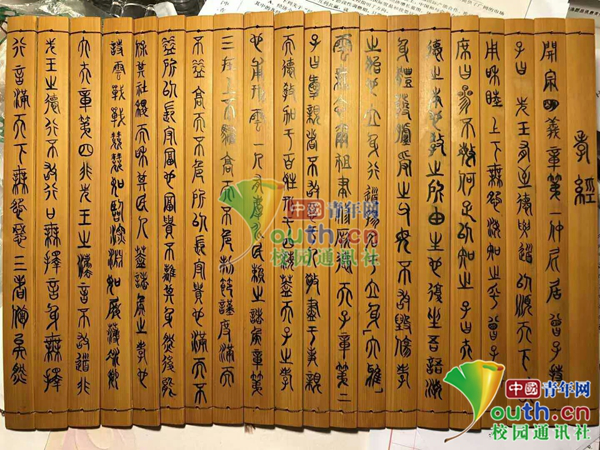 孝經
開宗明義章第一仲尼居曾子侍
子曰先王有至德要道以順天下
用和睦上下無怨汝知之乎曾子
席曰參不敏何足以知之子曰夫
德之本也教之所由生也復坐吾語汝
身體髮膚受之父母不敢毀傷孝
之始也立身行道揚名立身大雅
雲無念爾祖聿修厥德天子章第二
子曰愛親者不敢敬盡于事親
而德教加于百姓刑于四海蓋天子之孝
也甫刑雲一人有慶兆民賴之諸侯章第
三在上不驕高而不危制節謹度滿而
不溢高而不危所以長守貴也滿而不
溢所以長守富也富貴不離其身然後能
保其社稷而和其民人蓋諸侯之孝也
詩雲戰戰兢兢如臨深淵如履薄冰卿
大夫章第四非先王之法言不敢道非
先王之德行不敢行口無擇言身無擇
行言滿天下無怨惡三者備矣然
中國青年网
youth.cn
校园通讯社
中國青年网
youth.cn
校园通讯社